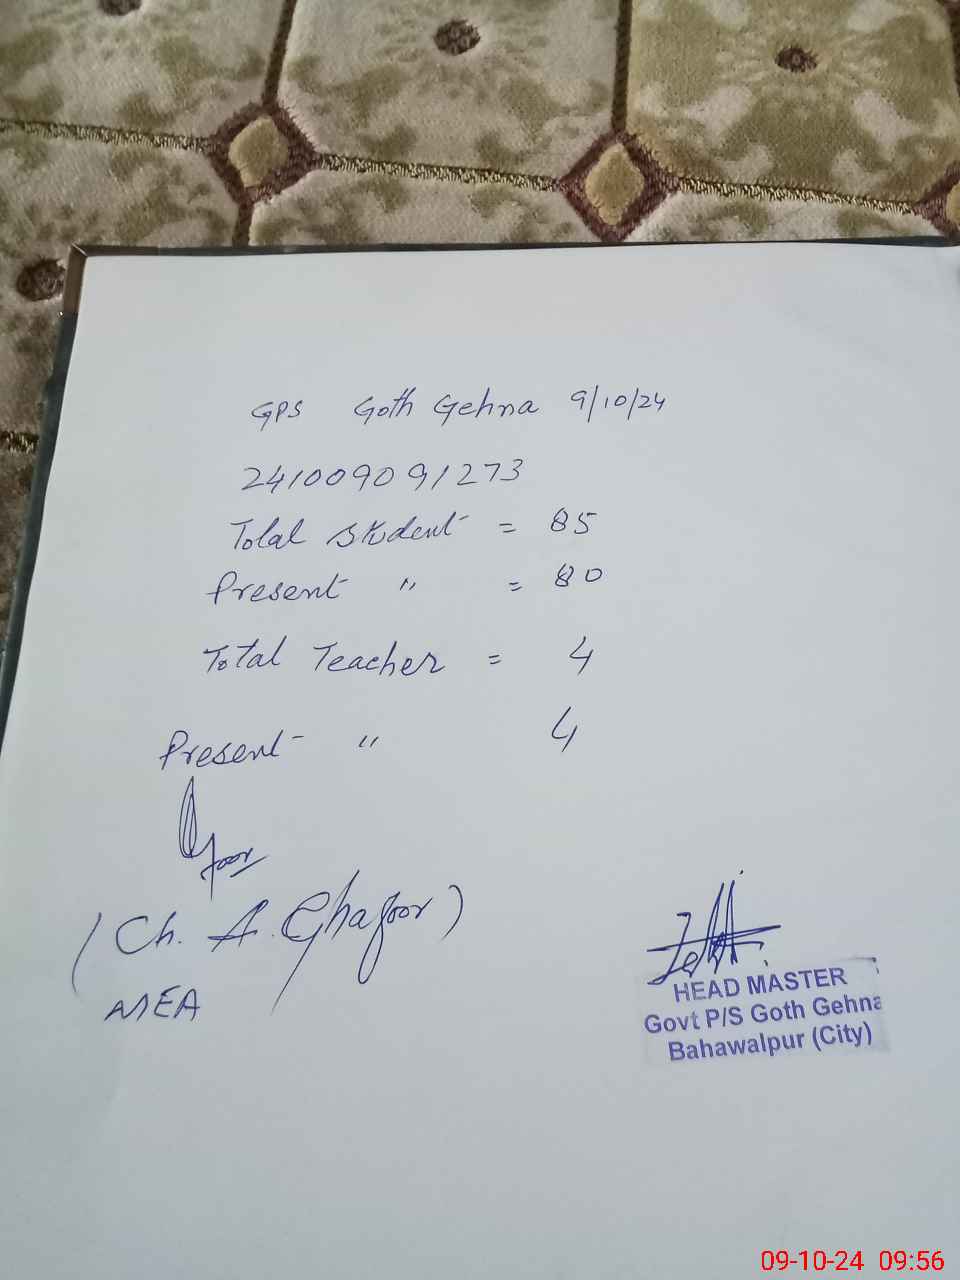 GPS Goth Gehna 9/10/24
241009091273
Total Student = 85
Present " = 80
Total Teacher = 4
Present " 4
(Ch. A. Ghafoor)
AEA
HEAD MASTER
Govt P/S Goth Gehna
Bahawalpur (City)
09-10-24 09:56